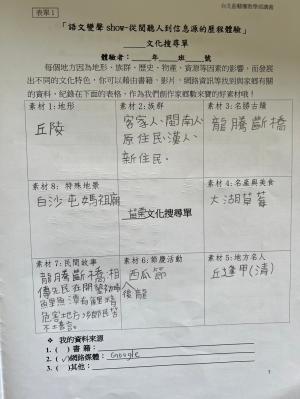 表單1
台北益教網教學資源教案
「語文變聲 show-從閱聽人到信息源的歷程體驗」
文化搜尋單
體驗者: 年 班 號
每個地方因為地形、族群、歷史、物產、資源等因素的影響,而發展
出不同的文化特色,你可以藉由書籍、影片、網路資訊等找到與家鄉有關
的資料,紀錄在下面的表格,作為我們創作家鄉數來寶的好素材哦!
素材 1:地形
丘陵
素材 2:族群
客家人、閩南人
原住民、漢人、
新住民.
素材 3:名勝古蹟
龍騰斷橋
素材 8: 特殊地景
白沙屯媽祖廟
苗栗文化搜尋單
素材 4:名產與美食
大湖草莓
素材 7:民間故事
龍騰斷橋:相
傳先民在開墾初時
危害地方
素材 6:節慶活動
西瓜節
後龍
素材 5:地方名人
丘逢甲(清)
❖ 我的資料來源
1. ( ) 書 籍:
2. (✓)網路媒體: Google
3. ( )其他:
1